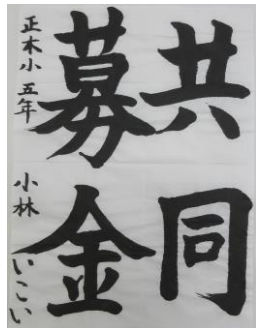 共同
募金
正木小 五年
小林 いこい